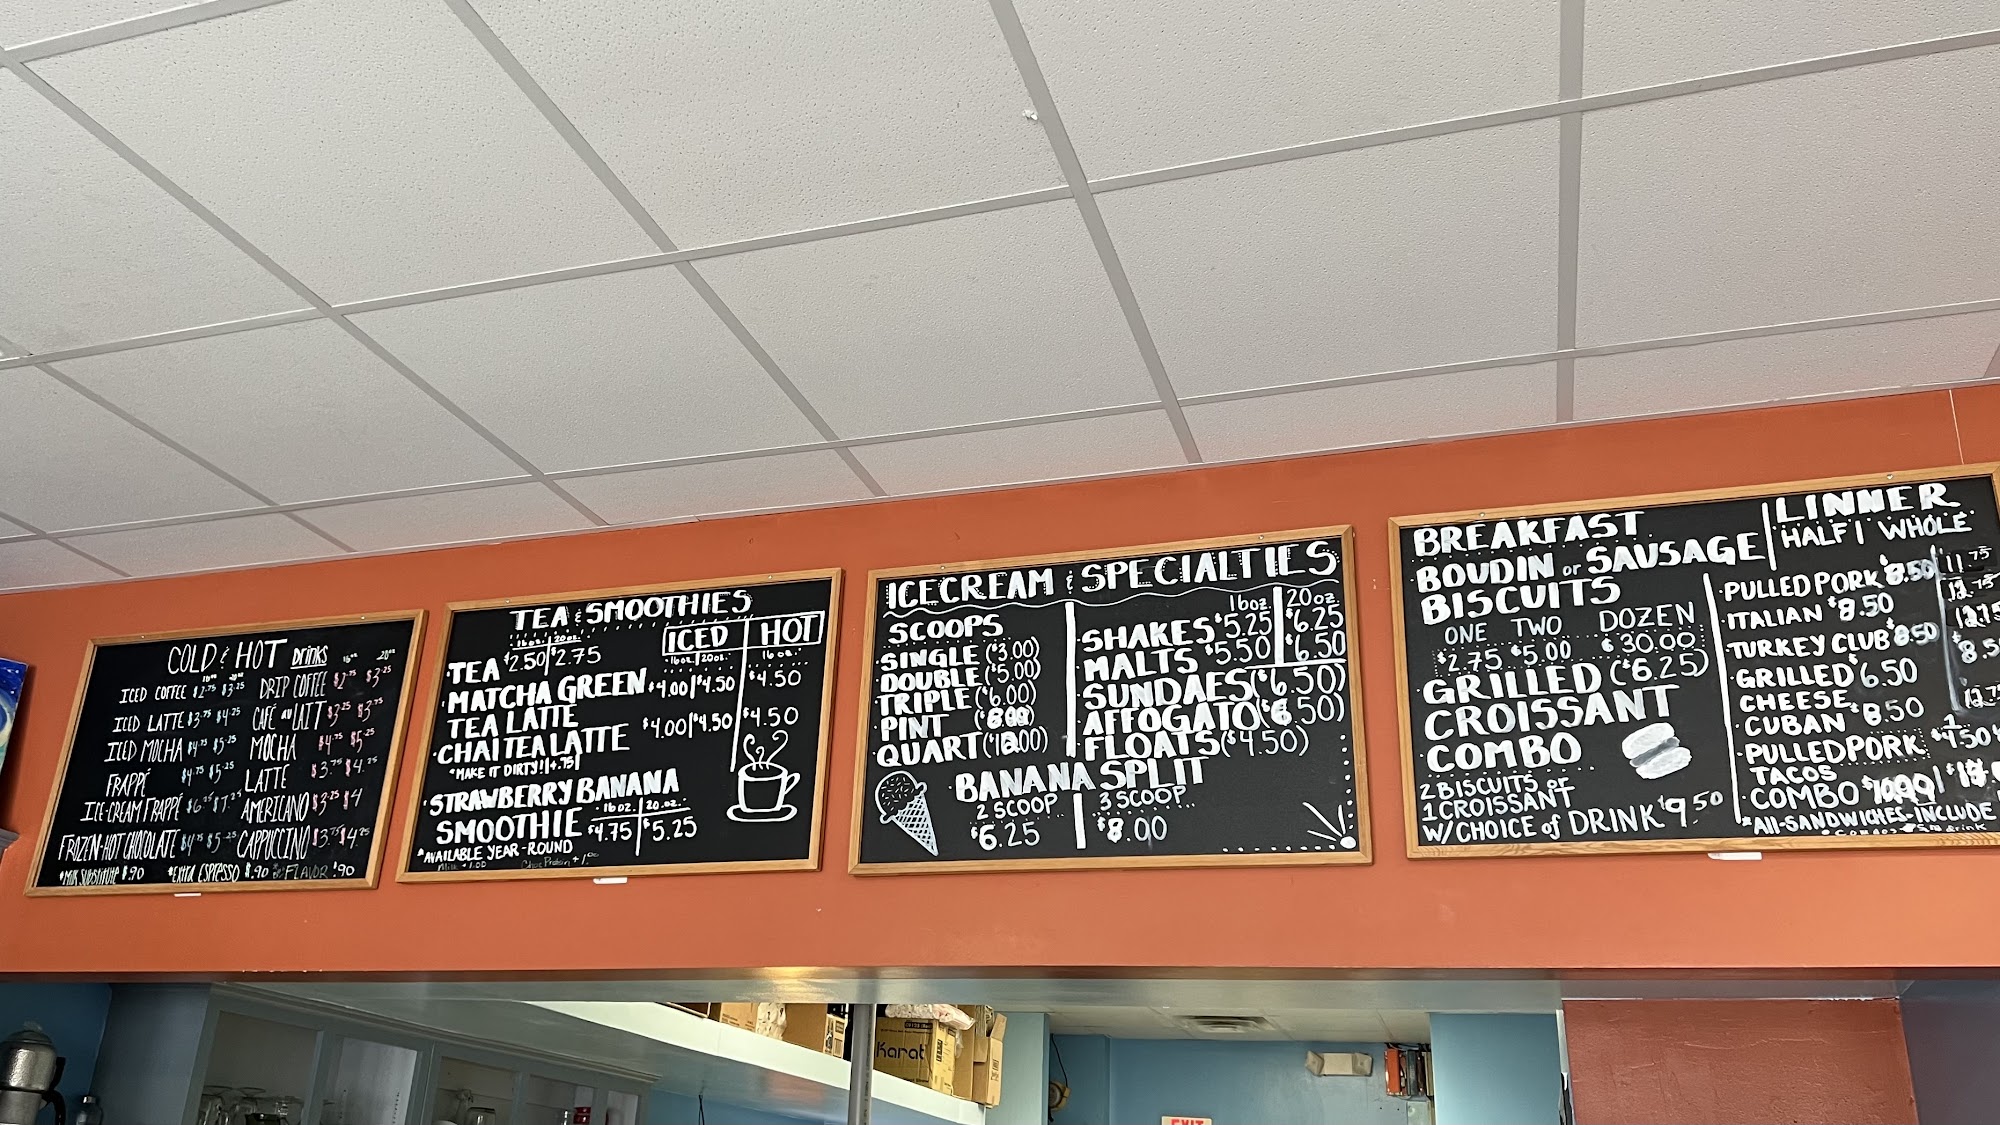 COLD & HOT DRINKS
16oz. 20oz.
ICED COFFEE $2.75 $3.25 DRIP COFFEE $2.75 $3.25
ICED LATTE $3.75 $4.25 CAFÉ AU LAIT $3.25 $3.75
ICED MOCHA $4.75 $5.25 MOCHA $4.75 $5.25
FRAPPÉ $4.75 $5.25 LATTE $3.75 $4.25
ICE-CREAM FRAPPÉ AMERICANO $3.25 $4
FROZEN-HOT CHOCOLATE $4.75 $5.25 CAPPUCCINO $3.75 $4.25
*MILK SUBSTITUTE $.90 *EXTRA ESPRESSO $.90 FLAVOR .90
TEA & SMOOTHIES
16oz. 20oz. ICED HOT
TEA $2.50 | $2.75 16oz. | 20oz. 16oz.
MATCHA GREEN $4.00 | $4.50 $4.50
TEA LATTE
CHAI TEA LATTE $4.00 | $4.50 $4.50
*MAKE IT DIRTY! | 4.75 |
STRAWBERRY BANANA 16oz. 20.oz.
SMOOTHIE $4.75 $5.25
*AVAILABLE YEAR-ROUND
ICECREAM & SPECIALTIES
SCOOPS 16oz. 20oz.
SINGLE ($3.00) SHAKES $5.25 $6.25
DOUBLE ($5.00) MALTS $5.50 $6.50
TRIPLE ($6.00) SUNDAES ($6.50)
PINT AFFOGATO ($6.50)
QUART FLOATS ($4.50)
BANANA SPLIT
2 SCOOP 3 SCOOP
$6.25 $8.00
BREAKFAST
BOUDIN or SAUSAGE
BISCUITS
ONE TWO DOZEN
$2.75 $5.00 $30.00
GRILLED ($6.25)
CROISSANT
COMBO
2 BISCUITS or
1 CROISSANT
W/ CHOICE of DRINK $9.50
LINNER
HALF | WHOLE
PULLED PORK $8.50 11.75
ITALIAN $8.50 12.75
TURKEY CLUB $8.50 12.75
GRILLED $6.50 $8.5
CHEESE
CUBAN $8.50 12.75
PULLED PORK $4.50
TACOS
COMBO
*ALL-SANDWICHES-INCLUDE
Karat
EXIT